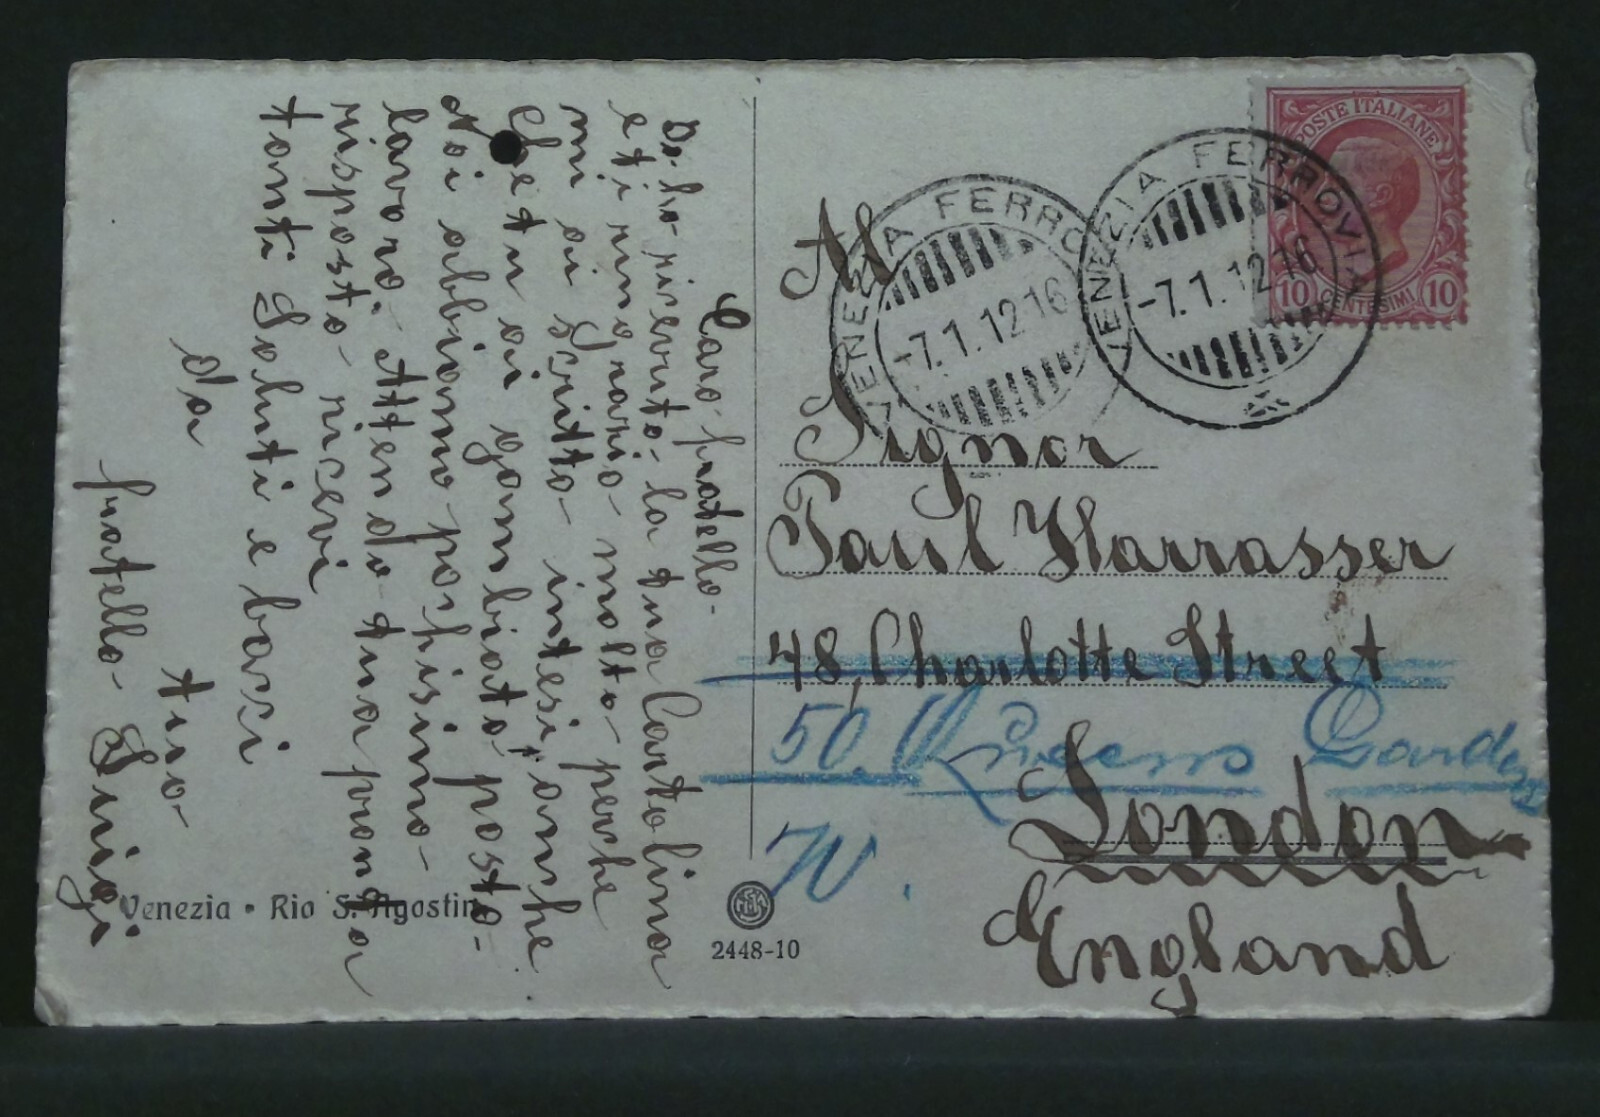 Caro fratello
Do ho ricevuto la tua Cartolina
e ti ringrazio molto perche
mi ai Scrito intesi anche
Che tu ai gambiato posto
Noi abbiamo pochisimo
lavoro. Attendo tua pronta
risposta ricevi
tanti Saluti e bacci
da
tuo
fratello Luigi
Venezia • Rio S. Agostin
2448-10
POSTE ITALIANE
10 CENTESIMI 10
VENEZIA FERRO
-7.1.12 16
VENEZIA FERROVIA
-7.1.12 16
Al
Signor
Paul Harrasser
48, Charlotte Street
50. Queens Gardens
W.
London
England